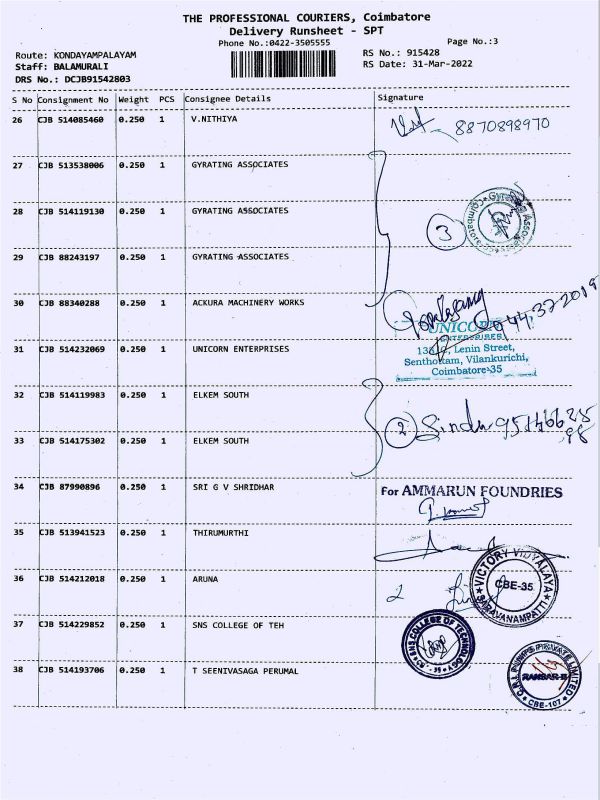 THE PROFESSIONAL COURIERS, Coimbatore
Delivery Runsheet - SPT
Phone No.:0422-3505555
Page No.:3
Route: KONDAYAMPALAYAM
RS No.: 915428
Staff: BALAMURALI
RS Date: 31-Mar-2022
DRS No.: DCJB91542803
S No Consignment No Weight PCS Consignee Details Signature
26 CJB 514085460 0.250 1 V.NITHIYA 8870898970
27 CJB 513538006 0.250 1 GYRATING ASSOCIATES
28 CJB 514119130 0.250 1 GYRATING ASSOCIATES
3
Gyrating Associates
Coimbatore
29 CJB 88243197 0.250 1 GYRATING ASSOCIATES
30 CJB 88340288 0.250 1 ACKURA MACHINERY WORKS
UNICORN
ENTERPRISES
31 CJB 514232069 0.250 1 UNICORN ENTERPRISES
Lenin Street,
Senthottam, Vilankurichi,
Coimbatore-35
32 CJB 514119983 0.250 1 ELKEM SOUTH
2 Sindu
33 CJB 514175302 0.250 1 ELKEM SOUTH
34 CJB 87990896 0.250 1 SRI G V SHRIDHAR
For AMMARUN FOUNDRIES
35 CJB 513941523 0.250 1 THIRUMURTHI
36 CJB 514212018 0.250 1 ARUNA
2
VICTORY VIDYALAYA
CBE-35
SARAVANAMPATTI
37 CJB 514229852 0.250 1 SNS COLLEGE OF TEH
SNS COLLEGE OF TECHNOLOGY
38 CJB 514193706 0.250 1 T SEENIVASAGA PERUMAL
C.R.I. PUMPS PRIVATE LIMITED
CBE-107